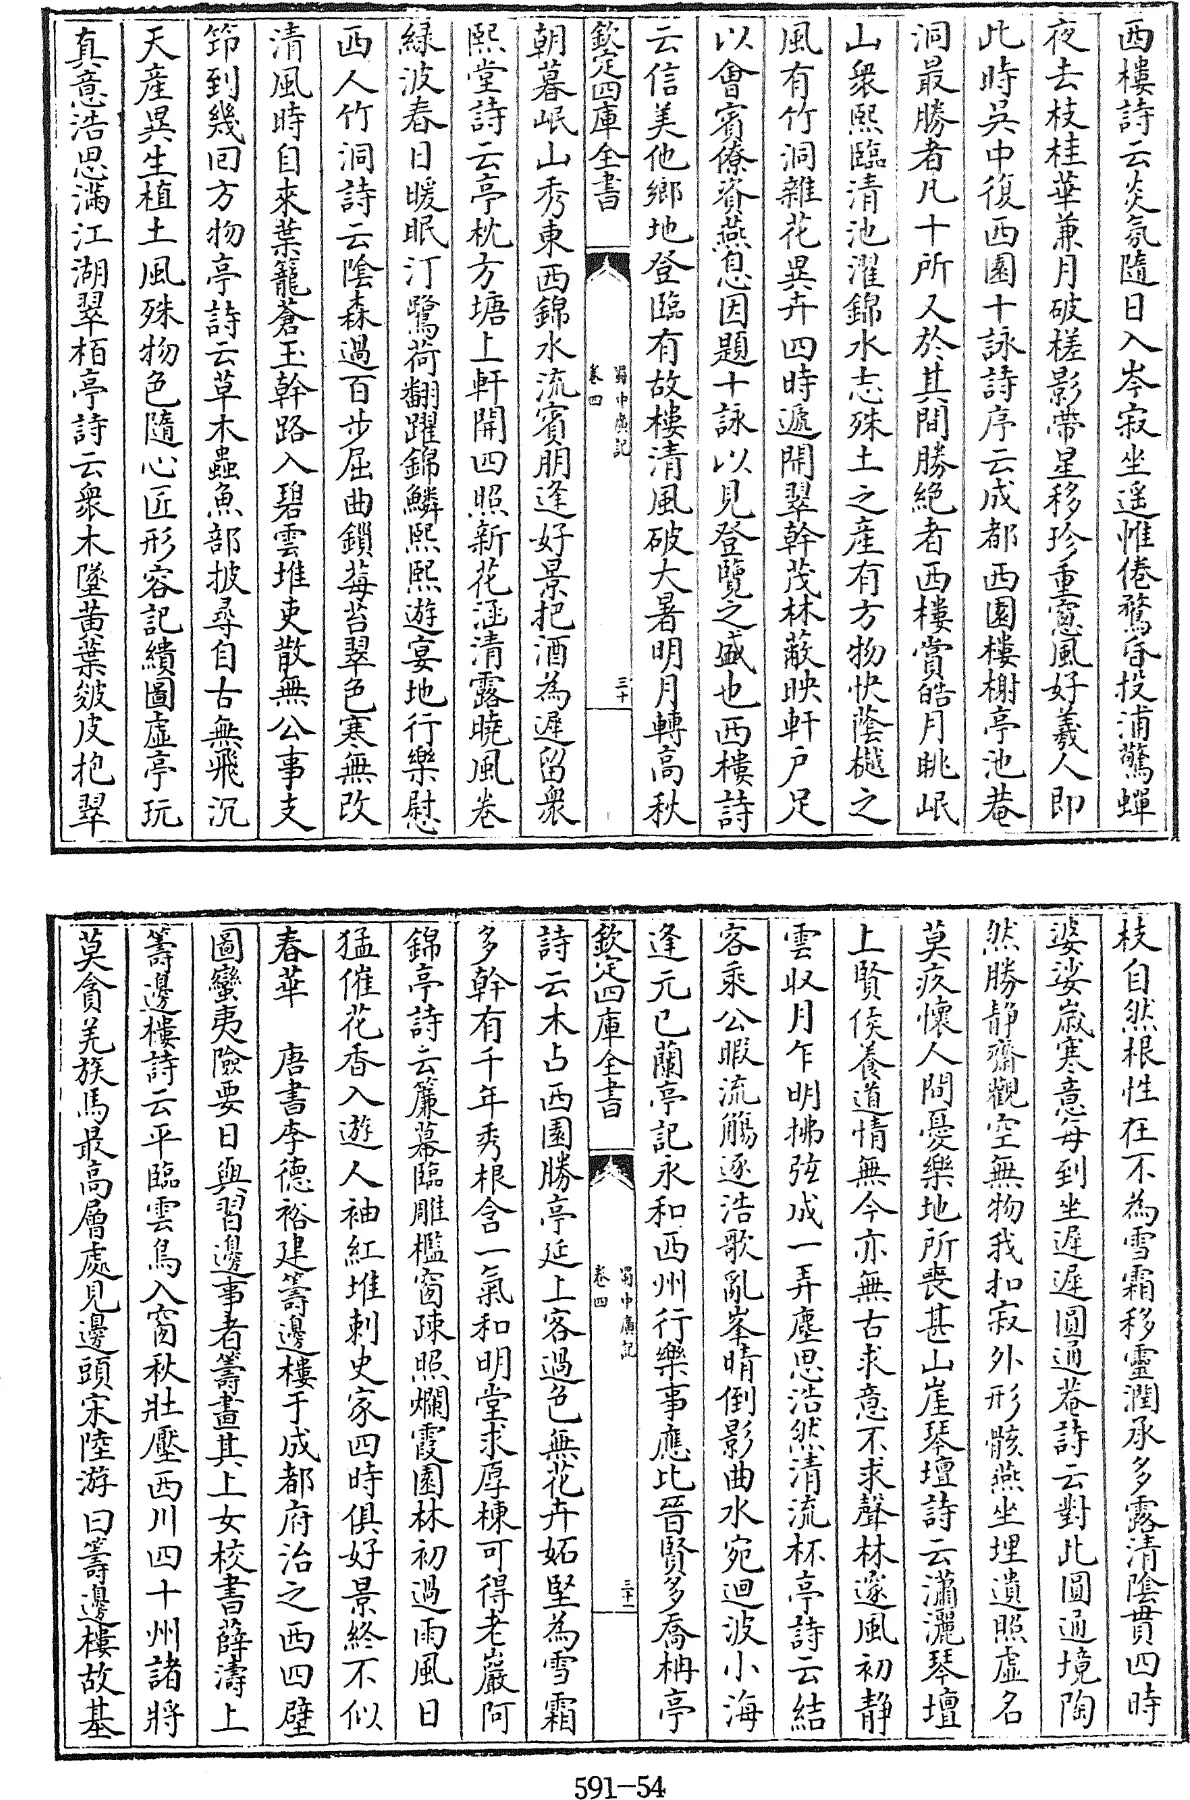 西樓詩云炎氛隨日入岑寂坐遥帷倦鶩昏投浦驚蟬
夜去枝桂華兼月破槎影帶星移珍重窻風好羲人即
此時吳中復西園十詠詩序云成都西園樓榭亭池菴
洞最勝者凡十所又於其間勝絶者西樓賞皓月眺岷
山衆熙臨清池濯錦水志殊土之産有方物快蔭樾之
風有竹洞雜花異卉四時遞開翠幹茂林蔽映軒户足
以會賓僚資燕息因題十詠以見登覽之盛也西樓詩
云信美他鄉地登臨有故樓清風破大暑明月轉高秋
欽定四庫全書
蜀中廣記
卷四
三十
朝暮岷山秀東西錦水流賓朋逢好景把酒為遲留衆
熙堂詩云亭枕方塘上軒開四照新花涵清露曉風卷
緑波春日暖眠汀鷺荷翻躍錦鱗熙熙遊宴地行樂慰
西人竹洞詩云陰森過百步屈曲鎻莓苔翠色寒無改
清風時自來葉籠蒼玉幹路入碧雲堆吏散無公事支
笻到幾回方物亭詩云草木蟲魚部披尋自古無飛沉
天産異生植土風殊物色隨心匠形容記繢圖虚亭玩
真意浩思滿江湖翠栢亭詩云衆木墜黄葉皴皮抱翠
枝自然根性在不為雪霜移靈潤承多露清陰貫四時
婆娑嵗寒意每到坐遲遲圓通菴詩云對此圓通境陶
然勝静齋觀空無物我扣寂外形骸燕坐埋遺照虚名
莫疚懷人間憂樂地所喪甚山崖琴壇詩云瀟灑琴壇
上賢侯養道情無今亦無古求意不求聲林邃風初静
雲収月乍明拂弦成一弄塵思浩然清流杯亭詩云結
客乘公暇流觴逐浩歌亂峯晴倒影曲水宛迴波小海
逢元巳蘭亭記永和西州行樂事應比晉賢多喬柟亭
欽定四庫全書
蜀中廣記
卷四
三十一
詩云木占西園勝亭延上客過色無花卉妬堅為雪霜
多幹有千年秀根含一氣和明堂求厚棟可得老巖阿
錦亭詩云簾幕臨雕檻窗疎照爛霞園林初過雨風日
猛催花香入遊人袖紅堆刺史家四時俱好景終不似
春華　唐書李德裕建籌邊樓于成都府治之西四壁
圖蠻夷險要日與習邊事者籌畫其上女校書薛濤上
籌邊樓詩云平臨雲鳥入窗秋壯壓西川四十州諸將
莫貪羌族馬最高層處見邊頭宋陸游曰籌邊樓故基
591-54